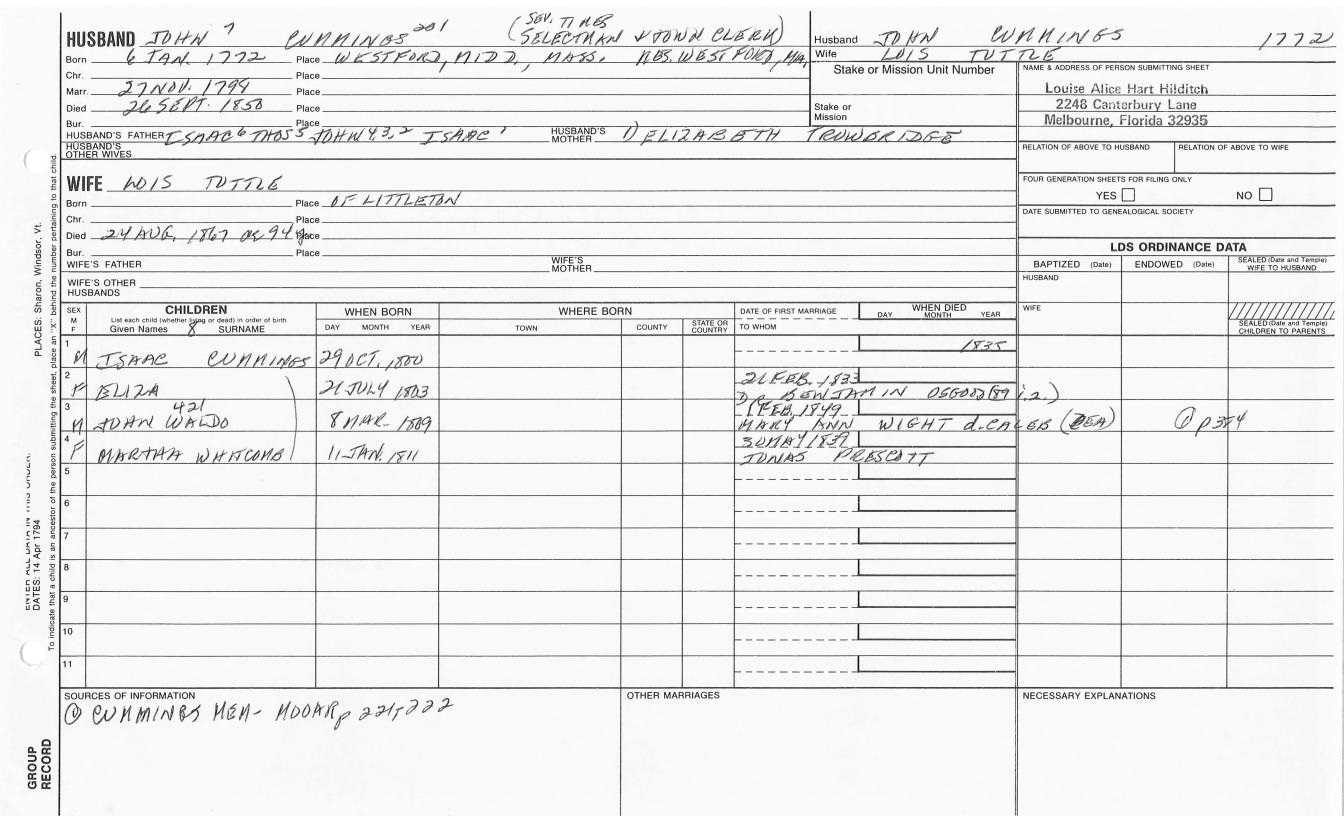 HUSBAND JOHN 7 CUMMINGS 201 (SEV. TIMES SELECTMAN & TOWN CLERK)
Born 6 JAN. 1772 Place WESTFORD, MIDD., MASS. RES. WESTFORD, MA.
Chr. Place
Marr. 27 NOV. 1799 Place
Died 26 SEPT. 1850 Place
Bur. Place
HUSBAND'S FATHER ISAAC 6 THOS 5 JOHN 4,3,2 ISAAC 1 HUSBAND'S MOTHER 1) ELIZABETH TROWBRIDGE
HUSBAND'S OTHER WIVES
WIFE LOIS TUTTLE
Born Place OF LITTLETON
Chr. Place
Died 24 AUG. 1867 ae 94 y Place
Bur. Place
WIFE'S FATHER WIFE'S MOTHER
WIFE'S OTHER HUSBANDS
Husband JOHN CUMMINGS 1772
Wife LOIS TUTTLE
Stake or Mission Unit Number
Stake or Mission
NAME & ADDRESS OF PERSON SUBMITTING SHEET
Louise Alice Hart Hilditch
2248 Canterbury Lane
Melbourne, Florida 32935
RELATION OF ABOVE TO HUSBAND RELATION OF ABOVE TO WIFE
FOUR GENERATION SHEETS FOR FILING ONLY
YES NO
DATE SUBMITTED TO GENEALOGICAL SOCIETY
LDS ORDINANCE DATA
BAPTIZED (Date) ENDOWED (Date) SEALED (Date and Temple) WIFE TO HUSBAND
HUSBAND
WIFE
SEALED (Date and Temple) CHILDREN TO PARENTS
SEX M F
CHILDREN
List each child (whether living or dead) in order of birth
Given Names 8 SURNAME
WHEN BORN
DAY MONTH YEAR
WHERE BORN
TOWN COUNTY STATE OR COUNTRY
DATE OF FIRST MARRIAGE
TO WHOM
WHEN DIED
DAY MONTH YEAR
1 1835
M ISAAC CUMMINGS 29 OCT. 1800
2 21 FEB. 1833
F ELIZA 21 JULY 1803 DR. BENJAMIN OSGOOD (89 i.2.)
3 421 1 FEB. 1849
M JOHN WALDO 8 MAR. 1809 MARY ANN WIGHT d. CALEB (DEA) ① p 384
4 30 MAY 1839
F MARTHA WHITCOMB 11 JAN. 1811 JONAS PRESCOTT
5
6
7
8
9
10
11
SOURCES OF INFORMATION
① CUMMINGS MEM- MOOAR p 221, 222
OTHER MARRIAGES
NECESSARY EXPLANATIONS
PLACES: Sharon, Windsor, Vt.
ENTER ALL DATA IN THIS ORDER:
DATES: 14 Apr 1794
To indicate that a child is an ancestor of the person submitting the sheet, place an "X" behind the number pertaining to that child.
GROUP RECORD